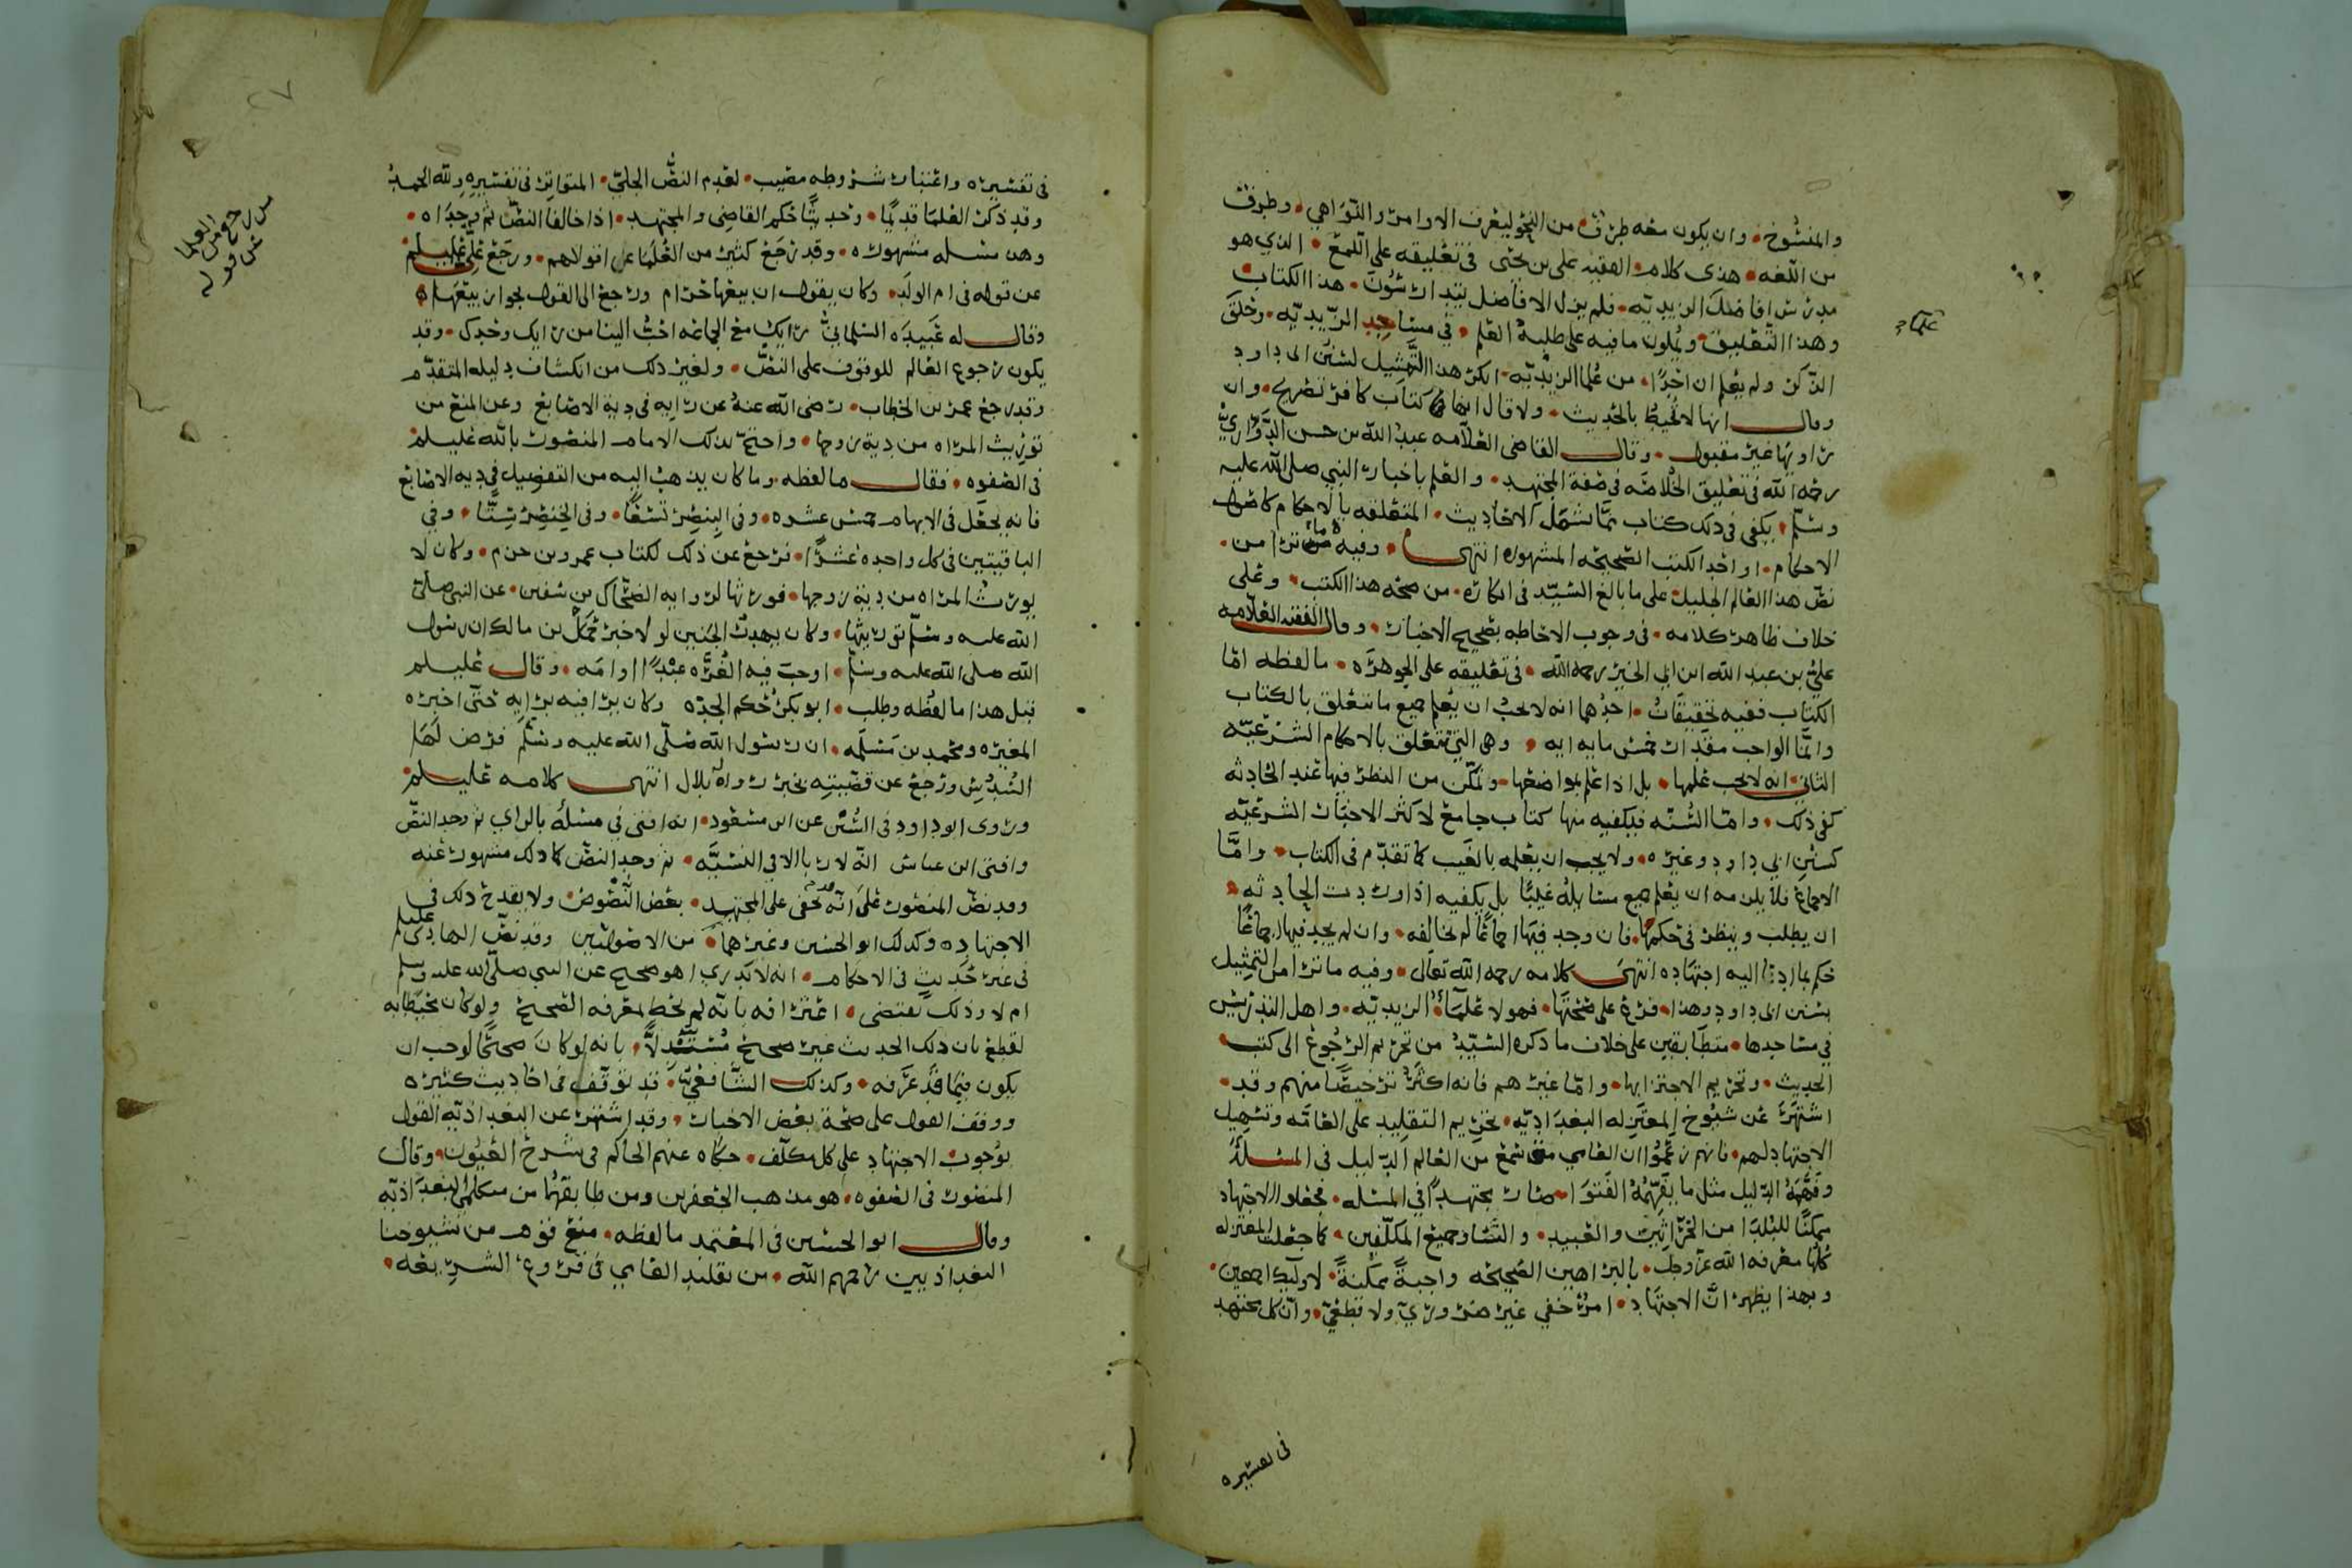 والمنسوخ وان يكون معه طرف من النحو ليعرف الاوامر والنواهي وطرف
من اللغه هذى كلام الفقيه على بن يحيى فى تعليقه على اللمع الذي هو
مدرس افاضل الزيديه فلم يزل الافاضل يتدارسون هذا الكتاب
وهذا التعليق ويملون ما فيه على طلبة العلم في مساجد الزيديه وحلق
الذكر ولم يعلم ان احدًا من علما الزيديه انكر هذا التمثيل لسنن ابى داود
وقال انها لا تحيط بالحديث ولا قال انها كتاب كافر تصريح وان
راويها غير مقبول وقال القاضى العلامه عبد الله بن حسن الدواري
رحمه الله فى تعليق الخلاصه فى صفة المجتهد والعلم باخبار النبي صلى الله عليه
وسلم يكفى فى ذلك كتاب مما تشمل الاحاديث المتعلقه بالاحكام كاصول
الاحكام او احد الكتب الصحيحه المشهوره انتهى وفيه ما ترا من
نص هذا العالم الجليل على ما بالغ السيد فى انكاره من صحه هذا الكتب وعلى
خلاف ظاهر كلامه فى وجوب الاحاطه بصحيح الاخبار وقال الفقيه العلامه
على بن عبد الله ابن ابي الخير رحمه الله فى تعليقه على الجوهره ما لفظه اما
الكتاب ففيه تحقيقان احدهما انه لا يجب ان يعلم جميع ما تتعلق بالكتاب
وانما الواجب مقدار خمس مايه ايه وهى التي تتعلق بالاحكام الشرعيه
الثاني انه لا يجب علمها بل اذا علم بمواضعها وتمكن من النظر فيها عند الحادثه
كفى ذلك واما السنه فيكفيه منها كتاب جامع لاكثر الاخبار الشرعيه
كسنن ابي داود وغيره ولا يجب ان يعلمه بالغيب كما تقدم فى الكتاب واما
الاجماع فلا يلزمه ان يعلم جميع مسايله غيبًا بل يكفيه اذا وردت الحادثه
ان يطلب وينظر فى حكمها فان وجد فيها اجماعًا لم يخالفه وان لم يجد فيها اجماعًا
حكم بما ادى اليه اجتهاده انتهى كلامه رحمه الله تعالى وفيه ما ترا من التمثيل
بسنن ابى داود وهذا فرع على صحتها فهولا علماء الزيديه واهل التدريس
في مساجدها متطابقين على خلاف ما ذكره السيد من تحريم الرجوع الى كتب
الحديث وتحريم الاجتزا بها واما غيرهم فانه اكثر ترخيصًا منهم وقد
اشتهر عن شيوخ المعتزله البغداذيه تحريم التقليد على العامه وتسهيل
الاجتهاد لهم فانهم زعموا ان العامي متى سمع من العالم الدليل فى المسئله
وفهمه الدليل مثل ما يفهمه الفتوا صار مجتهدًا في المسئله فجعلوا الاجتهاد
ممكنًا للبلدا من الحراثين والعبيد والنسا وجميع المكلفين كما جعلت المعتزله
كلها معرفه الله عز وجل بالبراهين الصحيحه واجبةً ممكنةً لاوليك اجمعين
وبهذا يظهر ان الاجتهاد امر خفي غير ضروري ولا قطعي وان كل مجتهد
فى تفسيره
فى تفسيره واعتبار شروطه مصيب لعدم النص الجلي المتواتر فى تفسيره ولله الحمد
وقد ذكر العلما قديمًا وحديثًا حكم القاضى والمجتهد اذا خالفا النص ثم وجداه
وهى مسله مشهوره وقد رجع كثير من العلما عن اقوالهم ورجع على عليلم
عن قوله فى ام الولد وكان يقول ان بيعها حرام ورجع الى القول بجواز بيعها
وقال له عبيده السلماني رايك مع الجماعه احب الينا من رايك وحدك وقد
يكون رجوع العالم للوقوف على النص ولغير ذلك من انكشاف دليله المتقدم
وقد رجع عمر بن الخطاب رضى الله عنه عن رايه فى دية الاصابع وعن المنع من
توريث المراه من دية زوجها واحتج بذلك الامام المنصور بالله عليلم
فى الصفوه فقال ما لفظه وما كان يذهب اليه من التفضيل في ديه الاصابع
فانه يجعل فى الابهام خمس عشره وفى البنصر تسعًا وفى الخنصر ستًا وفي
الباقيتين فى كل واحده عشرًا فرجع عن ذلك لكتاب عمرو بن حزم وكان لا
يورث المراه من دية زوجها فورثها لروايه الضحاك بن سفين عن النبي صلى
الله عليه وسلم توريثها وكان يهدر الجنين لولا خبر حمل بن مالك ان رسول
الله صلى الله عليه وسلم اوجب فيه الغره عبدًا او امه وقال عليلم
قبل هذا ما لفظه وطلب ابو بكر حكم الجده وكان يرا فيه برايه حتى اخبره
المغيره ومحمد بن مسلمه ان رسول الله صلى الله عليه وسلم فرض لها
السدس ورجع عن قضيته بخبر رواه بلال انتهى كلامه عليلم
وروى ابو داود فى السنن عن ابن مسعود انه افتى في مسئله بالراي ثم وجد النص
وافتى ابن عباس انه لا ربا الا في النسيه ثم وجد النص كما ذلك مشهور عنه
وقد نص المنصور على انه قد يخفى على المجتهد بعض النصوص ولا يقدح ذلك فى
الاجتهاد وكذلك ابو الحسين وغيرهما من الاصوليين وقد نص الهادى عليلم
فى غير حديث فى الاحكام انه لا يدري اهو صحيح عن النبي صلى الله عليه وسلم
ام لا وذلك يقتضى اعترافه بانه لم يحط لمعرفه الصحيح ولو كان محيطابه
لقطع بان ذلك الحديث غير صحيح مستدلاً بانه لو كان صحيحًا لوجب ان
يكون فيما قد عرفه وكذلك الشافعي قد توقف فى احاديث كثيره
ووقف القول على صحة بعض الاخبار وقد اشتهر عن البغداذيه القول
بوجوب الاجتهاد على كل مكلف حكاه عنهم الحاكم فى شرح العيون وقال
المنصور فى الصفوه هو مذهب الجعفرين ومن طابقهما من متكلمى البغداذيه
وقال ابو الحسين فى المعتمد ما لفظه منع قوم من شيوخنا
البغداذيين رحمهم الله من تقليد العامي فى فروع الشريعه
من رجع من العلما
عن قوله